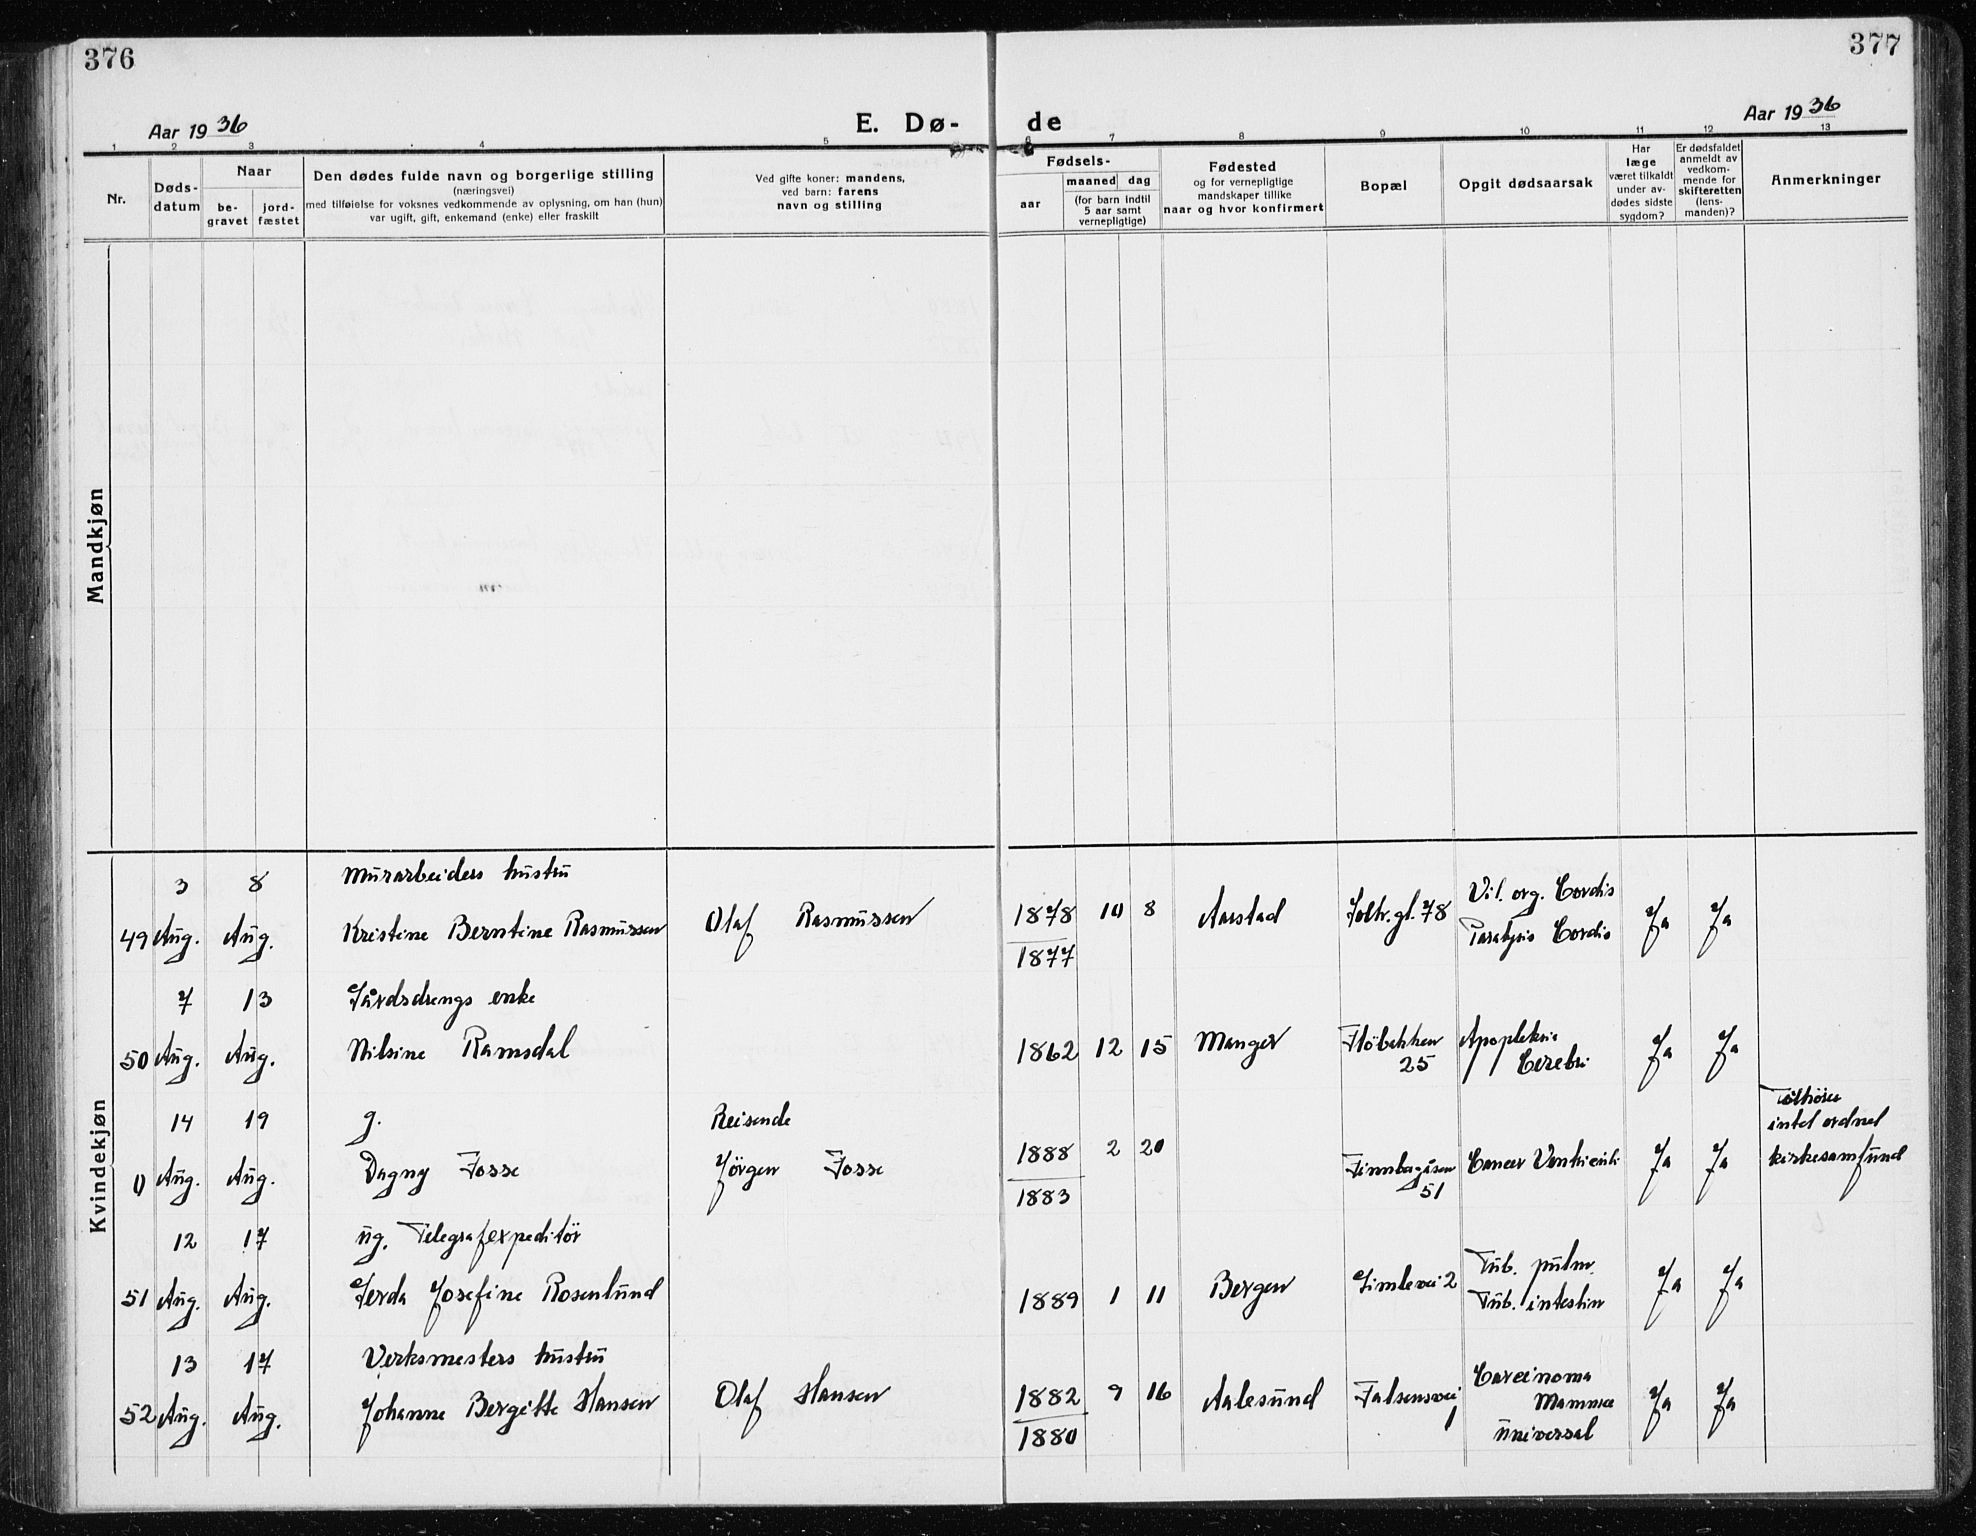 376
377
Aar 1936
E. Dø-
de
Aar 1936
1 2 3 4 5 6 7 8 9 10 11 12 13
Nr.
Døds-
datum
Naar
be-
gravet
jord-
fæstet
Den dødes fulde navn og borgerlige stilling
(næringsvei)
med tilføielse for voksnes vedkommende av oplysning, om han (hun)
var ugift, gift, enkemand (enke) eller fraskilt
Ved gifte koner: mandens,
ved barn: farens
navn og stilling
Fødsels-
aar
maaned dag
(for barn indtil
5 aar samt
vernepligtige)
Fødested
og for vernepligtige
mandskaper tillike
naar og hvor konfirmert
Bopæl
Opgit dødsaarsak
Har
læge
været tilkaldt
under av-
dødes sidste
sygdom?
Er dødsfaldet
anmeldt av
vedkom-
mende for
skifteretten
(lens-
manden)?
Anmerkninger
Mandkjøn
Kvindekjøn
3 8 Murarbeiders hustru
49 Aug. Aug. Kristine Berntine Rasmussen Olaf Rasmussen 1878 10 8 Aarstad 78 Vit. org. Cordis
1877 Paralysis Cordis Ja Ja
7 13 Gårdsdrengs enke
50 Aug. Aug. Nilsine Ramsdal 1862 12 15 Manger Fløbakken Apopleksia
25 Cerebri Ja Ja
14 19 g. Reisende
0 Aug. Aug. Dagny Fosse Jörgen Fosse 1888 2 20 Finnbergåsen Cancer Ventriculi Ja Ja
1883 51
Tilhörer
intet ordnet
kirkesamfund
12 17 ug. Telegrafexpeditör
51 Aug. Aug. Gerda Josefine Rosenlund 1889 1 11 Bergen Gimlevei 2 Tub. pulm.
Tub. intestin Ja Ja
13 17 Verksmesters hustru
52 Aug. Aug. Johanne Bergitte Hansen Olaf Hansen 1882 9 16 Aalesund Falsensvei Carcinoma
1880 1 Mammae
universal Ja Ja